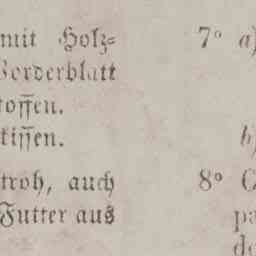 mit Holz-
Vorderblatt
toffen.
kissen.
troh, auch
Futter aus
7° a)
b)
8°